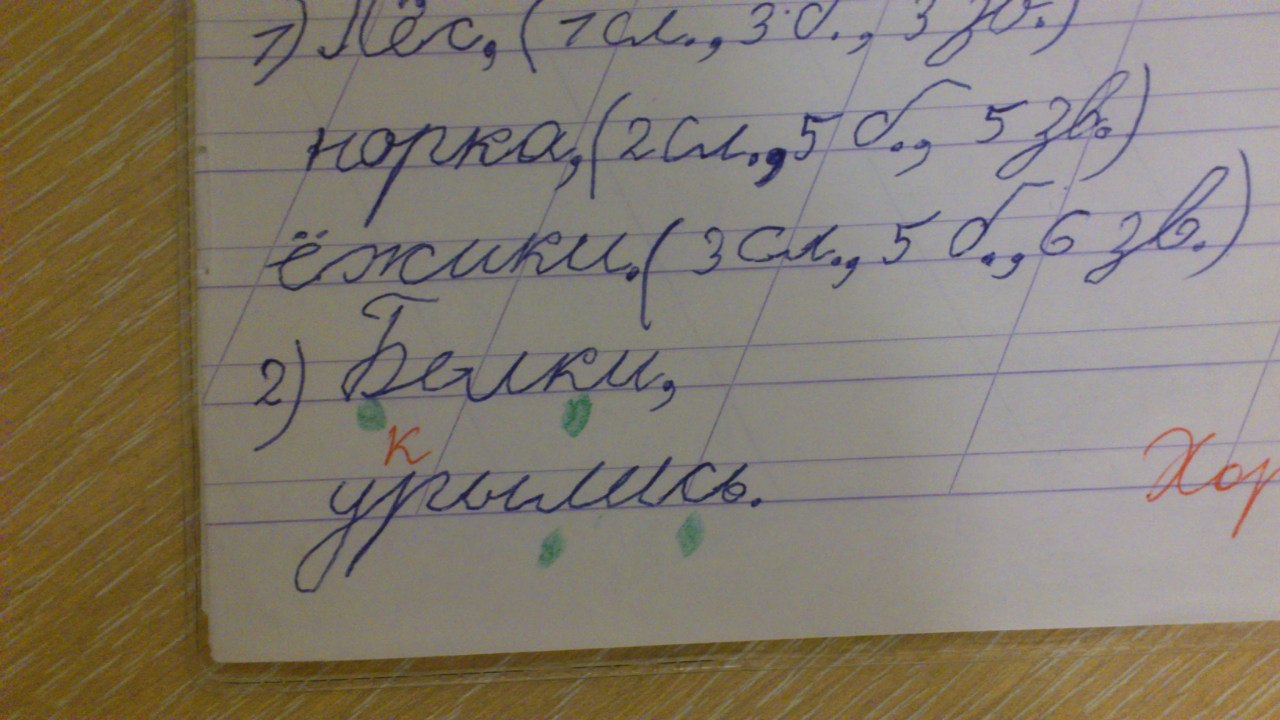 1) Лёс, (1 сл., 3 б., 3 зв.)
норка, (2 сл., 5 б., 5 зв.)
ёжики. (3 сл., 5 б., 6 зв.)
2) Белки,
к
урылись.
Хор